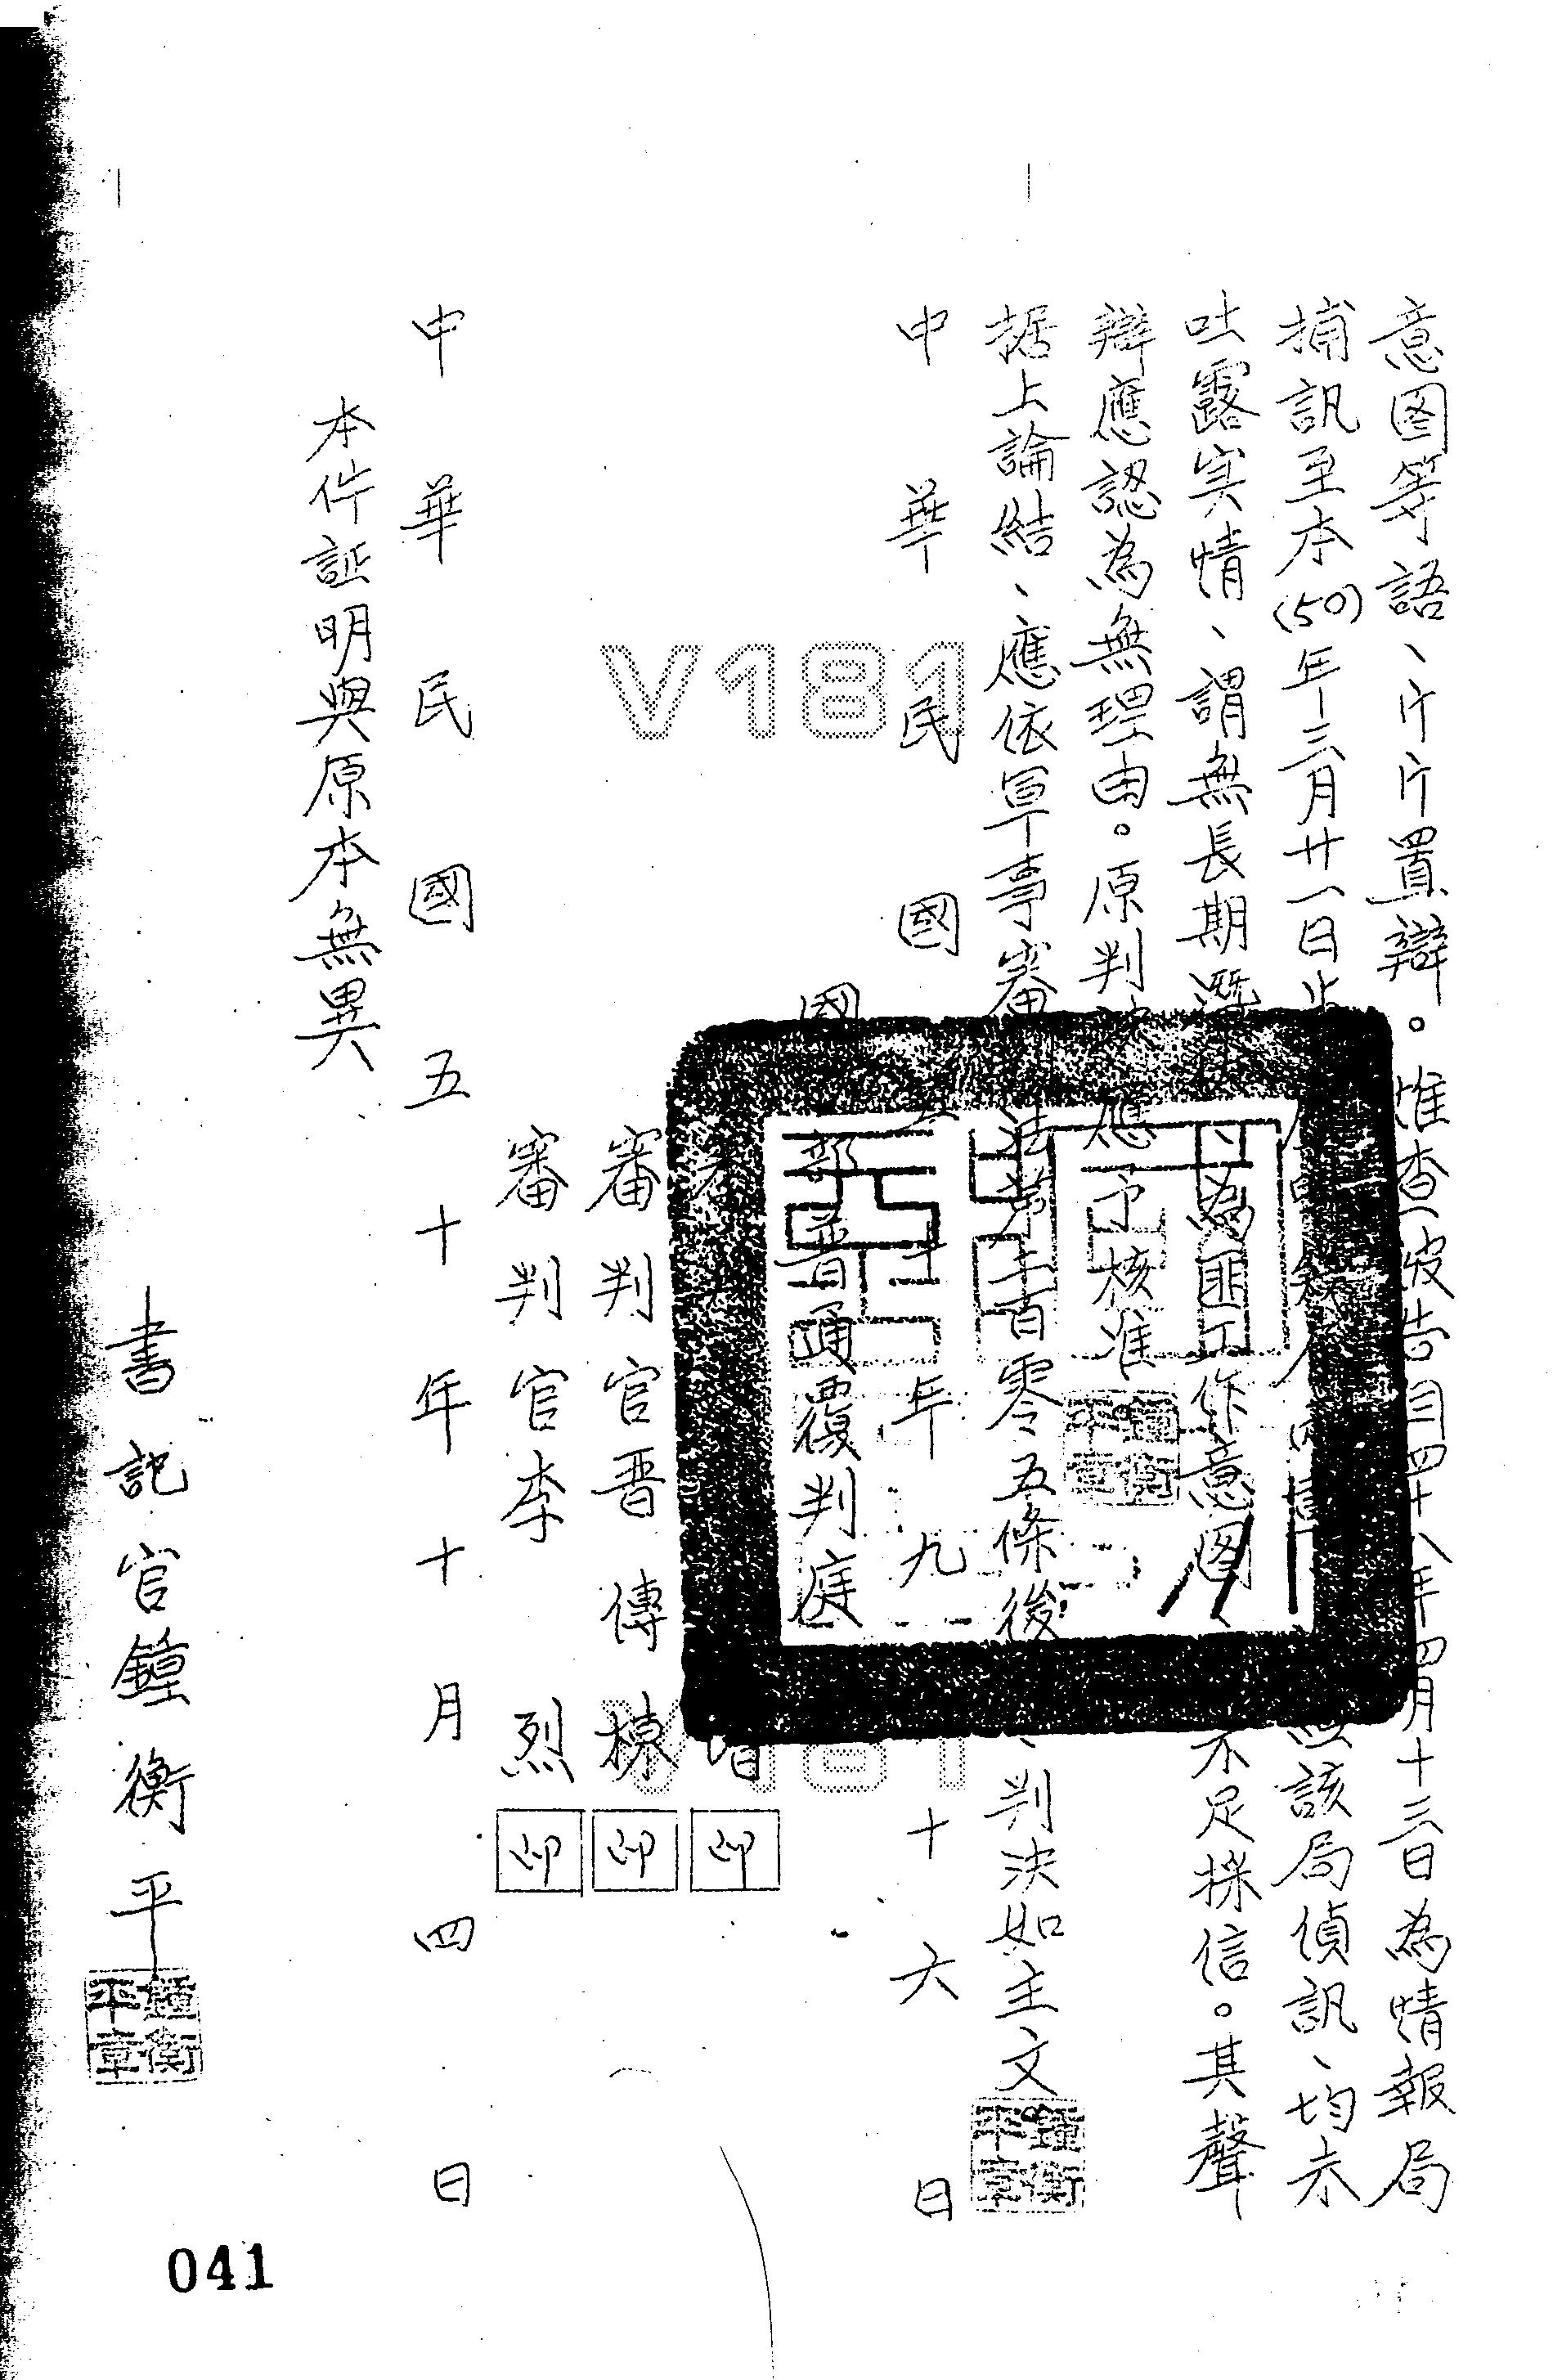 意图等語、斤斤置辯。惟查被告自四十八年四月十三日為情報局
捕訊至本(50)年三月廿一日止該局偵訊、均未
吐露実情、謂無長期潛為匪工作意图、不足採信。其聲
辯應認為無理由。原判決應予核准
据上論結、應依軍事審法第二百零五條後、判决如主文。
中華民國五十年九十六日
國部普通覆判庭
審
審判官晋傳棟 印
審判官李烈 印
中華民國五十年十月四日
本件証明與原本無異
書記官鐘衡平
鐘衡平章
V181
041